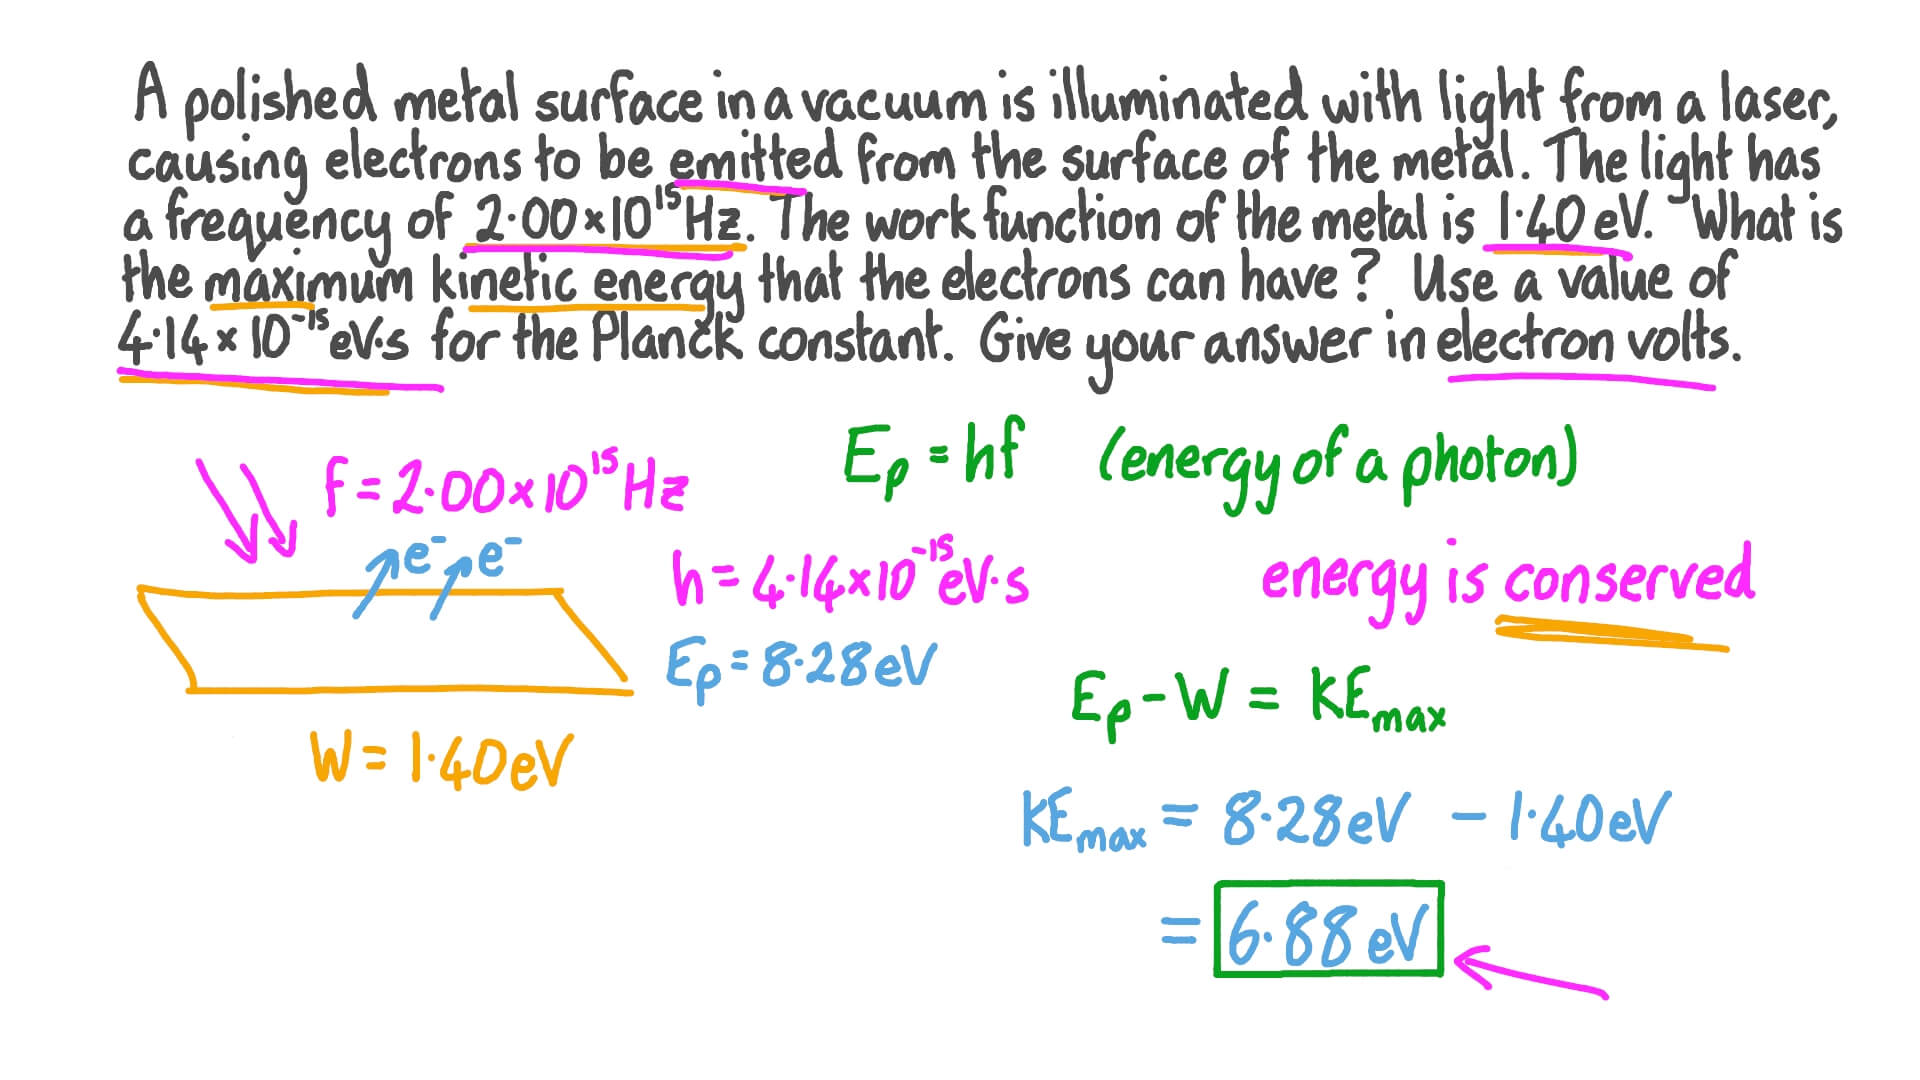 A polished metal surface in a vacuum is illuminated with light from a laser,
causing electrons to be emitted from the surface of the metal. The light has
a frequency of 2·00×10¹⁵Hz. The work function of the metal is 1·40 eV. What is
the maximum kinetic energy that the electrons can have? Use a value of
4·14×10⁻¹⁵eV·s for the Planck constant. Give your answer in electron volts.
Eₚ = hf (energy of a photon)
f = 2·00×10¹⁵Hz
e⁻ e⁻
h = 4·14×10⁻¹⁵eV·s
energy is conserved
Eₚ = 8·28eV
Eₚ - W = KEmax
W = 1·40eV
KEmax = 8·28eV - 1·40eV
= 6·88 eV